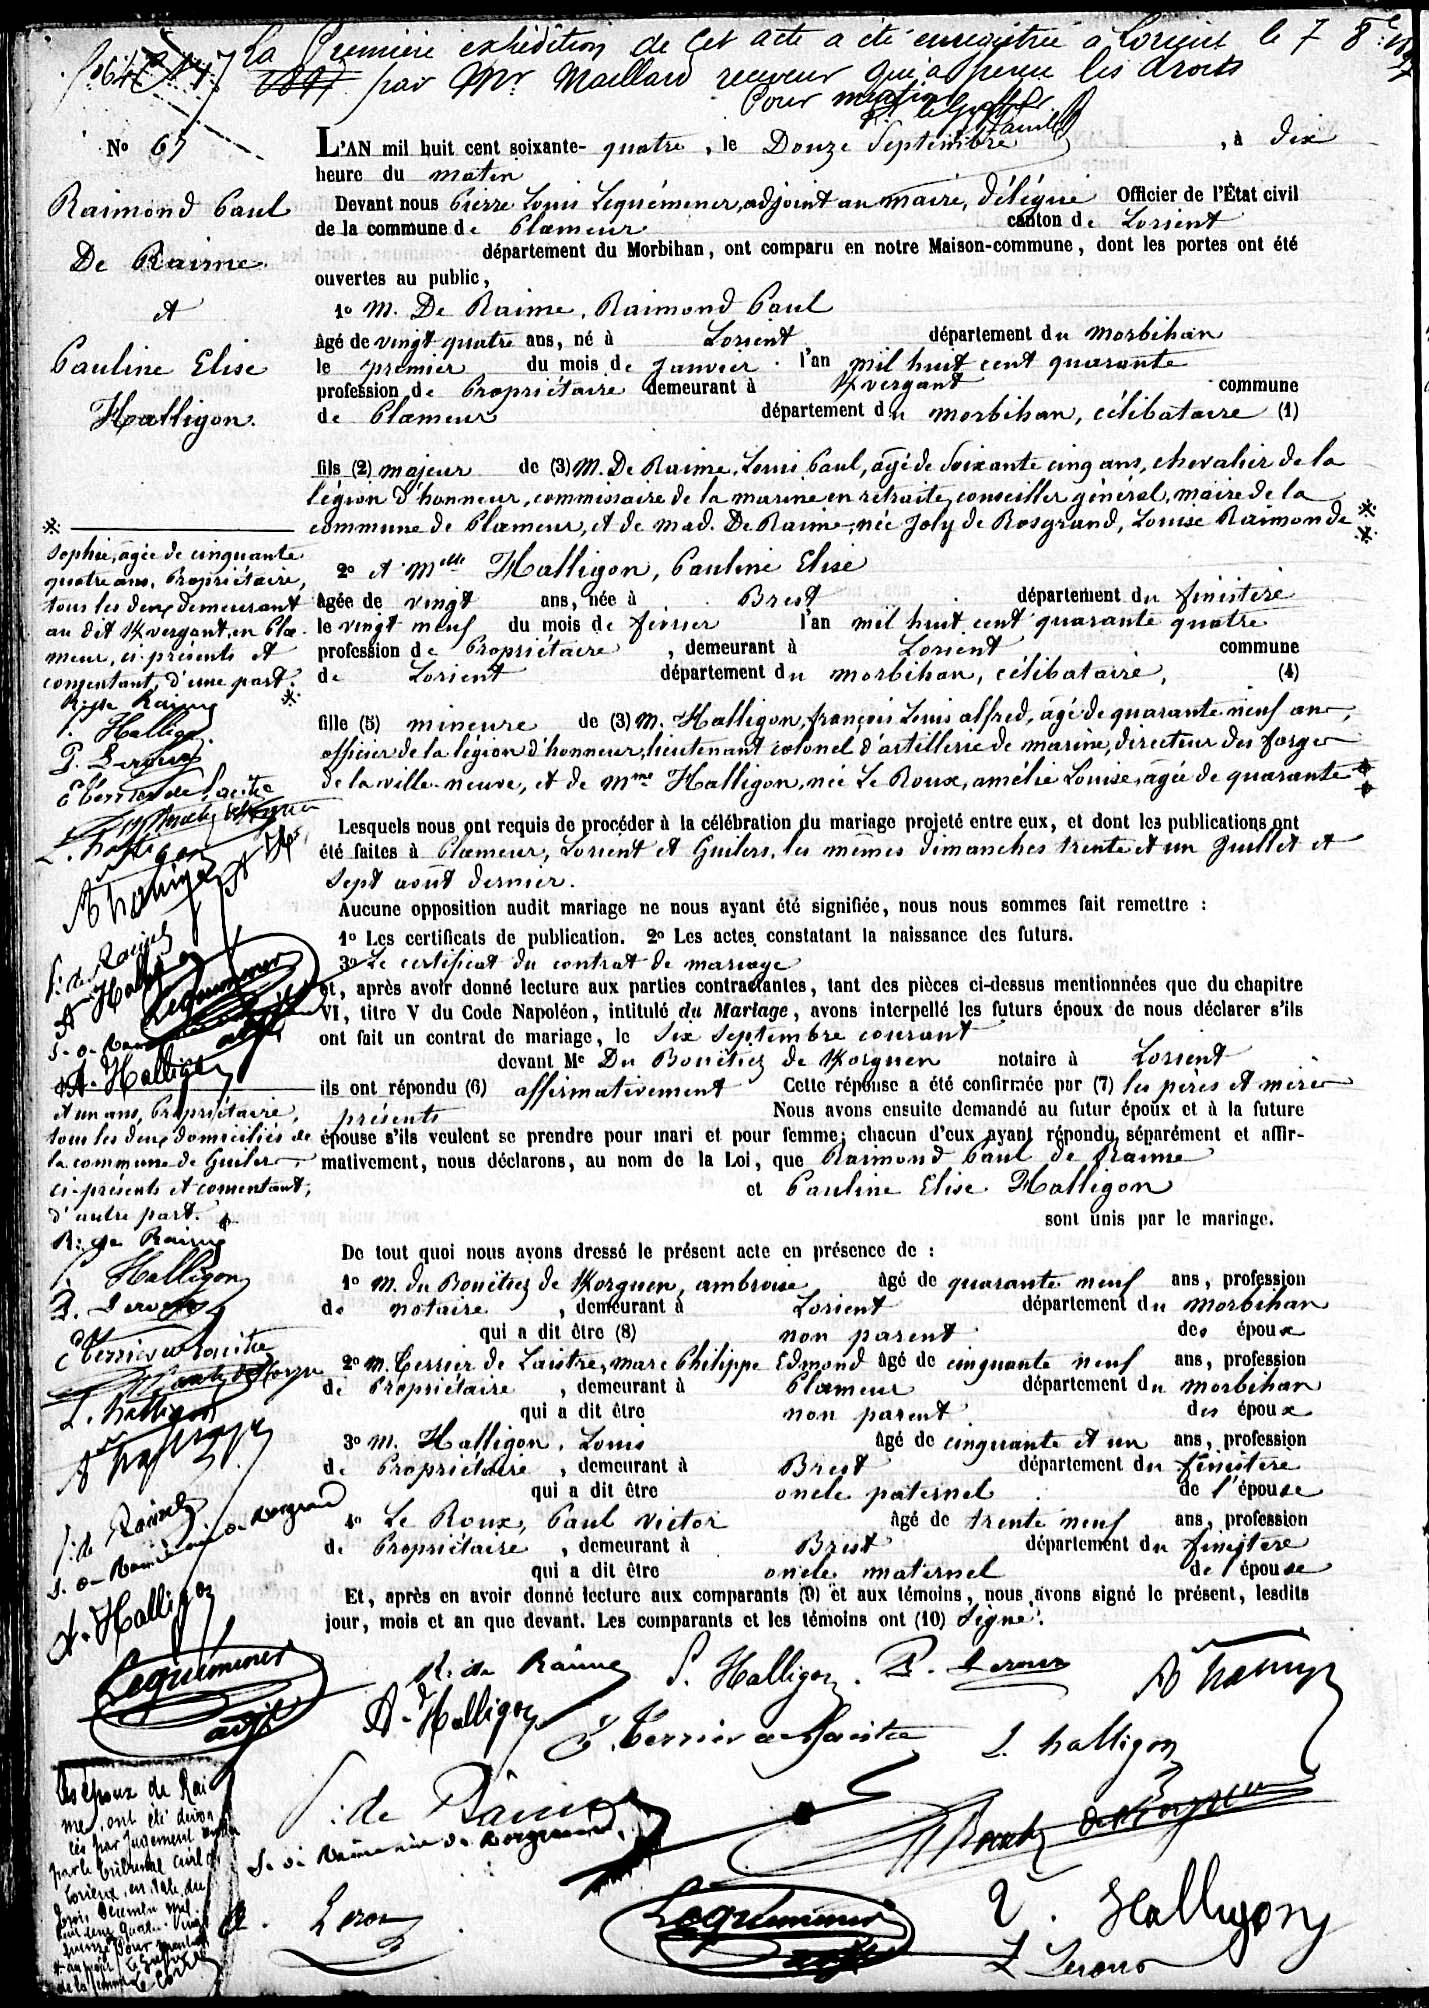 La Première expédition de cet acte a été enregistrée à Lorient le 7 8bre
par Mr Maillard receveur qui a perçu les droits
Pour mention
No 65
L'AN mil huit cent soixante-quatre, le Douze Septembre, à dix
heure du matin
Devant nous Pierre Louis Lequémener, adjoint au maire, délégué Officier de l'État civil
de la commune de Plœmeur canton de Lorient
département du Morbihan, ont comparu en notre Maison-commune, dont les portes ont été
ouvertes au public,
Raimond Paul
De Raime
et
Pauline Elise
Halligon.
1o M. De Raime, Raimond Paul
âgé de vingt quatre ans, né à Lorient département du Morbihan
le premier du mois de Janvier l'an mil huit cent quarante
profession de Propriétaire demeurant à Kvergant commune
de Plœmeur département du Morbihan, célibataire (1)
fils (2) majeur de (3) M. De Raime, Louis Paul, âgé de soixante cinq ans, chevalier de la
légion d'honneur, commissaire de la marine en retraite, conseiller général, maire de la
commune de Plœmeur, et de mad. De Raime, née Joly de Rosgrand, Louise Raimonde
Sophie, agée de cinquante
quatre ans, Propriétaire,
tous les deux demeurant
au dit Kvergant, en Plœ-
meur, ci-présents et
consentant, d'une part.
R. de Raime
P. Halligon
P. Leroux
L. halligon
A. Halligon
Lequémener
adjt
2o et Melle Halligon, Pauline Elise
âgée de vingt ans, née à Brest département du finistère
le vingt neuf du mois de février l'an mil huit cent quarante quatre
profession de Propriétaire, demeurant à Lorient commune
de Lorient département du Morbihan, célibataire, (4)
fille (5) mineure de (3) M. Halligon, françois Louis alfred, agé de quarante neuf ans,
officier de la légion d'honneur, lieutenant colonel d'artillerie de marine, directeur des forges
de la ville-neuve, et de Mme Halligon, née Le Roux, amélie Louise, agée de quarante
Lesquels nous ont requis de procéder à la célébration du mariage projeté entre eux, et dont les publications ont
été faites à Plœmeur, Lorient et Guilers, les mêmes dimanches trente et un Juillet et
sept août dernier.
Aucune opposition audit mariage ne nous ayant été signifiée, nous nous sommes fait remettre :
1o Les certificats de publication. 2o Les actes constatant la naissance des futurs.
3o Le certificat du contrat de mariage
et, après avoir donné lecture aux parties contractantes, tant des pièces ci-dessus mentionnées que du chapitre
VI, titre V du Code Napoléon, intitulé du Mariage, avons interpellé les futurs époux de nous déclarer s'ils
ont fait un contrat de mariage, le six septembre courant
devant Me Du Bouëtiez de Korguen notaire à Lorient
ils ont répondu (6) affirmativement Cette réponse a été confirmée par (7) les pères et mères
présents Nous avons ensuite demandé au futur époux et à la future
épouse s'ils veulent se prendre pour mari et pour femme; chacun d'eux ayant répondu séparément et affir-
mativement, nous déclarons, au nom de la Loi, que Raimond Paul de Raime
et Pauline Elise Halligon
sont unis par le mariage.
et un ans, Propriétaire,
tous les deux domiciliés de
la commune de Guilers,
ci-présents et consentant,
d'autre part.
R. de Raime
P. Halligon
P. Leroux
E Terrier de Laistre
L. halligon
A. Halligon
Lequémener
adjt
De tout quoi nous avons dressé le présent acte en présence de :
1o M. du Bouëtiez de Korguen, ambroise âgé de quarante neuf ans, profession
de notaire, demeurant à Lorient département du Morbihan
qui a dit être (8) non parent des époux
2o M. Terrier de Laistre, Marc Philippe Edmond âgé de cinquante neuf ans, profession
de Propriétaire, demeurant à Plœmeur département du Morbihan
qui a dit être non parent des époux
3o M. Halligon, Louis âgé de cinquante et un ans, profession
de Propriétaire, demeurant à Brest département du finistère
qui a dit être oncle paternel de l'épouse
4o Le Roux, Paul Victor âgé de trente neuf ans, profession
de Propriétaire, demeurant à Brest département du finistère
qui a dit être oncle maternel de l'épouse
Et, après en avoir donné lecture aux comparants (9) et aux témoins, nous avons signé le présent, lesdits
jour, mois et an que devant. Les comparants et les témoins ont (10) signé.
R. de Raime P. Halligon. P. Leroux
A. Halligon E. Terrier de Laistre L. halligon
de Raime
Leroux Lequémener adjt Halligon
L Leroux
Les époux de Rai-
me, ont été divor-
cés par jugement rendu
par le tribunal civil de
Lorient, en date du